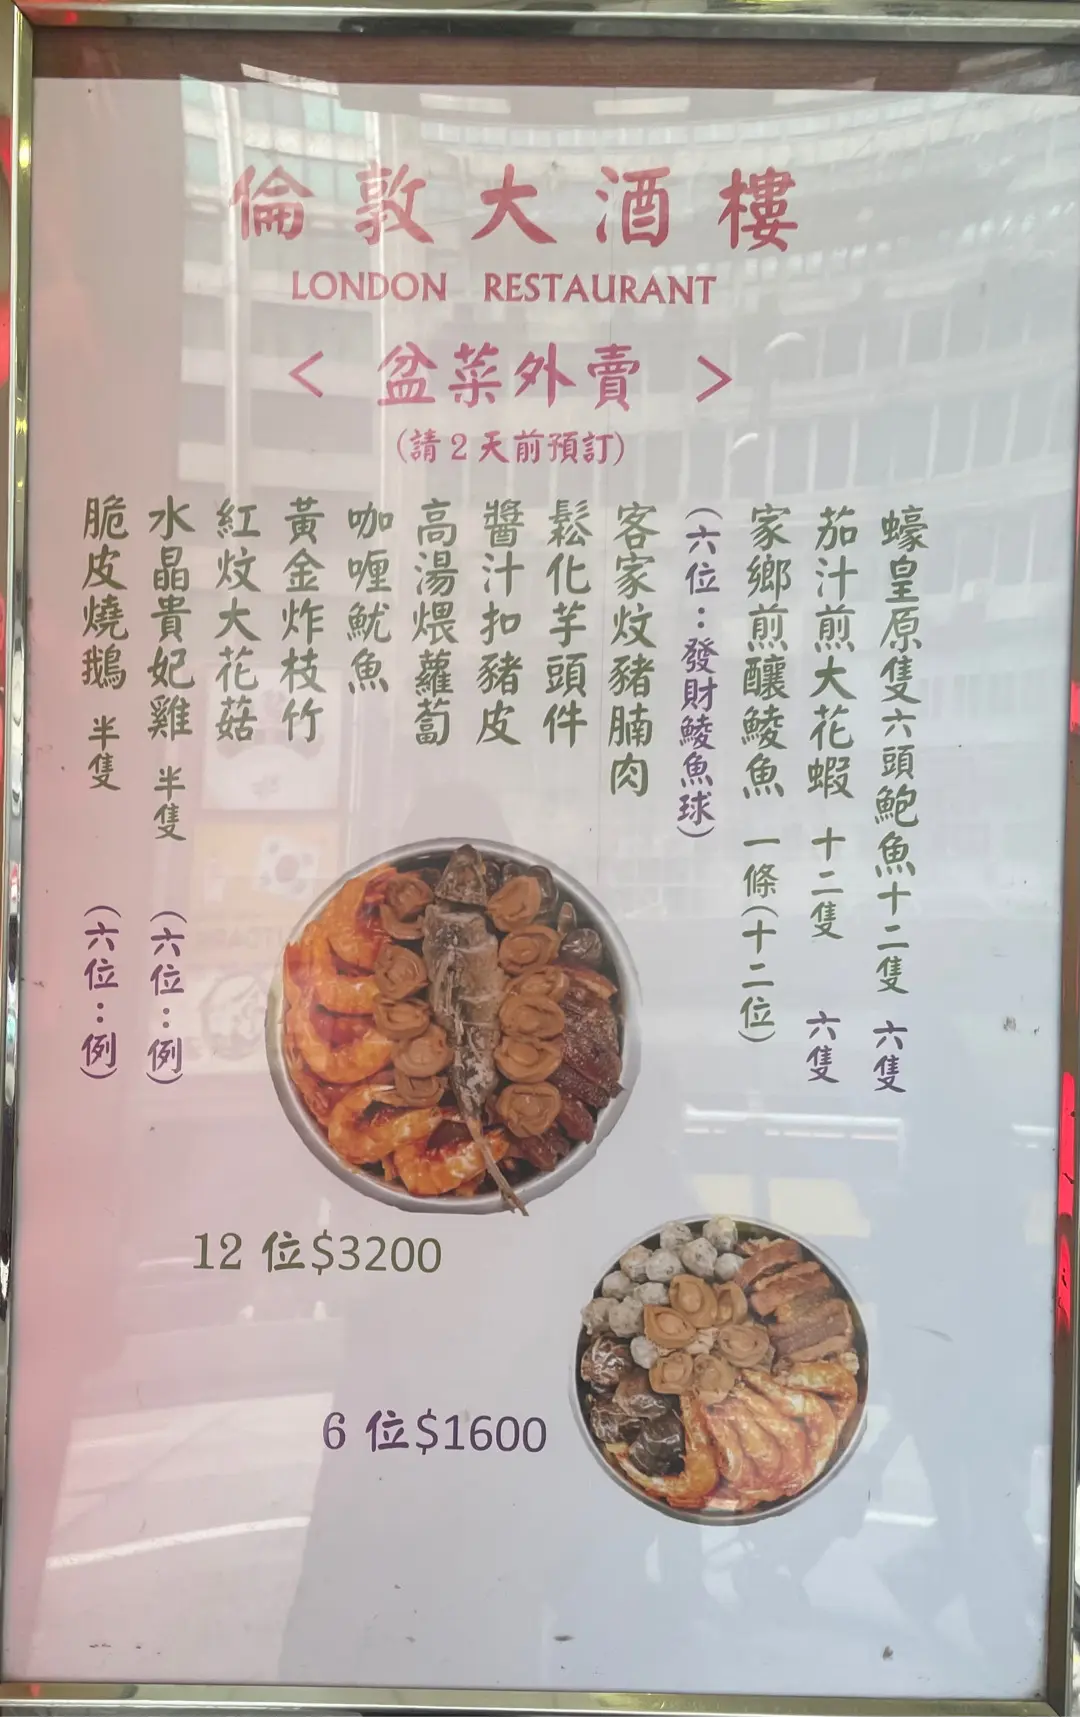 倫敦大酒樓
LONDON RESTAURANT
< 盆菜外賣 >
(請2天前預訂)
蠔皇原隻六頭鮑魚十二隻 六隻
茄汁煎大花蝦 十二隻 六隻
家鄉煎釀鯪魚 一條(十二位)
(六位：發財鯪魚球)
客家炆豬腩肉
鬆化芋頭件
醬汁扣豬皮
高湯煨蘿蔔
咖喱魷魚
黃金炸枝竹
紅炆大花菇
水晶貴妃雞 半隻 (六位：例)
脆皮燒鵝 半隻 (六位：例)
12 位$3200
6 位$1600